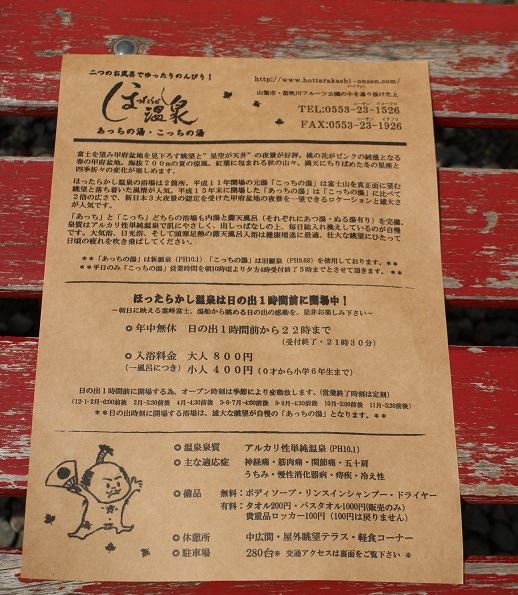 二つのお風呂でゆったりのんびり！
ほったらかし温泉
あっちの湯・こっちの湯
http://www.hottarakashi-onsen.com/
(ハイフン)
山梨市・笛吹川フルーツ公園の中を通り抜けた上
TEL:0553-23-1526
FAX:0553-23-1926
富士を望み甲府盆地を見下ろす眺望と"星空が天井"の夜景が好評。桃の花がピンクの絨毯となる
春の甲府盆地。海抜700mの夏の涼風。紅葉に包まれる秋の山々。満天にちりばめた冬の星座と
四季折々の変化が楽しめます。
ほったらかし温泉の浴場は2箇所。平成11年開場の元湯「こっちの湯」は富士山を真正面に望む
眺望と落ち着いた風情が人気。平成15年末に開場した「あっちの湯」は「こっちの湯」に比べて
2倍の広さで、新日本3大夜景の認定を受けた甲府盆地の夜景を一望できるロケーションと雄大さ
が人気です。
「あっち」と「こっち」どちらの浴場も内湯と露天風呂（それぞれにあつ湯・ぬる湯有り）を完備。
泉質はアルカリ性単純温泉で肌にやさしく、出しっぱなしの上、毎日総入れ換えしているのが自慢
です。大気浴、日光浴、そして頭寒足熱の露天風呂入浴は健康増進に最適。壮大な眺望にひたって
日頃の疲れを吹き飛ばしてください。
**「あっちの湯」は新源泉（PH10.1）「こっちの湯」は旧源泉（PH9.68）を使用しております。**
**平日のみ「こっちの湯」営業時間を朝10時頃より夕方4時受付終了5時までとさせて頂きます。**
ほったらかし温泉は日の出1時間前に開場中！
～朝日に映える霊峰富士、湯船から眺める日の出の感動を、是非お楽しみ下さい～
年中無休 日の出1時間前から22時まで
（受付終了・21時30分）
入浴料金 大人 800円
（一風呂につき） 小人 400円（0才から小学6年生まで）
日の出1時間前に開場する為、オープン時刻は季節により変動致します。（営業終了時刻は定刻）
(12・1・2月-6:00前後 3月-5:30前後 4月-4:30前後 5・6・7月-4:00前後 8・9月-4:30前後 10月-5:00前後 11月-5:30前後)
**日の出時刻に開場する浴場は、雄大な眺望が自慢の「あっちの湯」となります。**
温泉泉質 アルカリ性単純温泉（PH10.1）
主な適応症 神経痛・筋肉痛・関節痛・五十肩
うちみ・慢性消化器病・痔疾・冷え性
備品 無料：ボディソープ・リンスインシャンプー・ドライヤー
有料：タオル200円・バスタオル1000円(販売のみ)
貴重品ロッカー100円（100円は戻りません）
休憩所 中広間・屋外眺望テラス・軽食コーナー
駐車場 280台＊ 交通アクセスは裏面をご覧下さい ＊